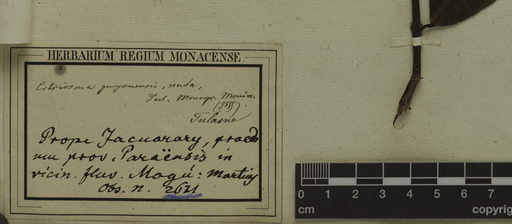 HERBARIUM REGIUM MONACENSE
Citriosma guyanensis, nuda,
Tul. Monogr. Monim.
(1855)
Tulasne
Prope Jacuarary, praedi
um prov. Paraënsis in
vicin. fluv. Mogú: Martius
Obs. n. 2621
0 1 2 3 4 5 6 7
cm copyrig